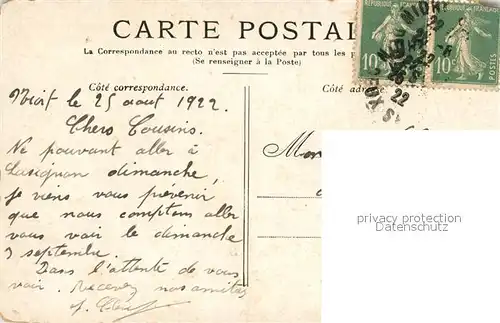 CARTE POSTAL
La Correspondance au recto n'est pas acceptée par tous les
(Se renseigner à la Poste)
Côté correspondance.
Côté adr
REPUBLIQUE FRANÇAISE
10c
10c
POSTES
22
Niort le 25 aout 1922
Chers Cousins.
Ne pouvant aller à
Lusignan dimanche,
je viens vous prévenir
que nous comptons aller
vous voir le dimanche
3 septembre.
Dans l'attente de vous
voir. Recevez nos amitiés
Mon
privacy protection
Datenschutz